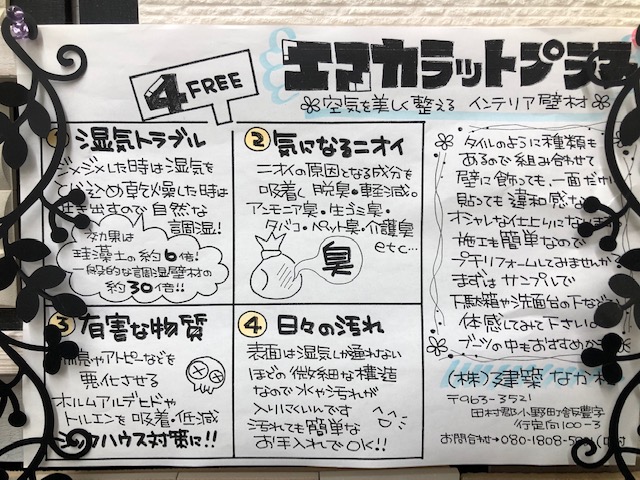 4 FREE
エコカラットプラス
空気を美しく整える インテリア壁材
湿気トラブル
ジメジメした時は湿気を
とじ込め乾燥した時は
吐き出すので自然な
調湿!
効果は
珪藻土の約6倍!
一般的な調湿壁材の
約30倍!!
2 気になるニオイ
ニオイの原因となる成分を
吸着し 脱臭・軽減。
アンモニア臭・生ゴミ臭・
タバコ・ペット臭・介護臭
etc…
臭
3 有害な物質
喘息やアトピーなどを
悪化させる
ホルムアルデヒドや
トルエンを吸着・低減
シックハウス対策に!!
4 日々の汚れ
表面は湿気しか通れない
ほどの微細な構造
なので水や汚れが
入りにくいんです
汚れても簡単な
お手入れでOK!!
タイルのように種類も
あるので組み合わせて
壁に飾っても、一面だけ
貼っても違和感な
オシャレな仕上りになります
施工も簡単なので
プチリフォームしてみませんか
まずはサンプルで
下駄箱や洗面台の下など
体感してみて下さい。
ブーツの中もおすすめ
(株)建築 なか
〒963-3521
田村郡小野町飯豊字
行定向100-3
お問合わせ→080-1808-5